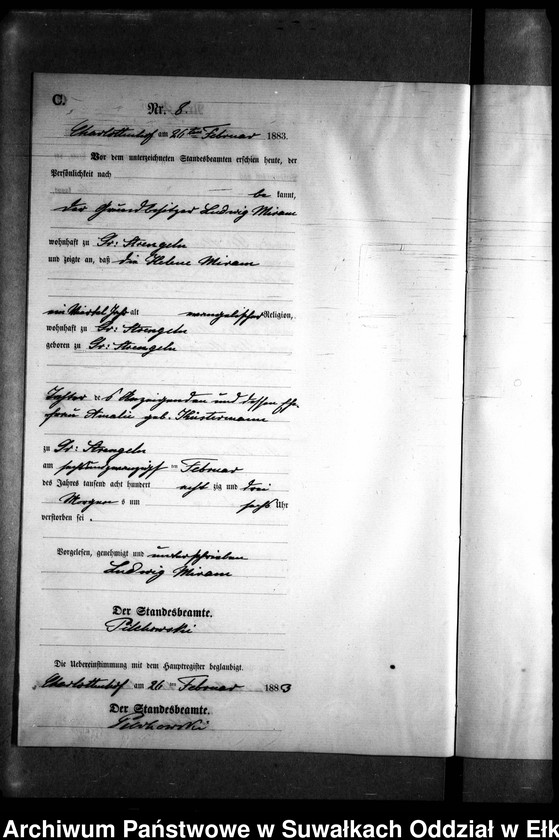 C.
Nr. 8.
Charlottenhof am 26ten Februar 1883.
Vor dem unterzeichneten Standesbeamten erschien heute, der
Persönlichkeit nach
be kannt,
der Grundbesitzer Ludwig Miram
wohnhaft zu Gr: Strengeln
und zeigte an, daß die Helene Miram
ein Viertel Jahr alt evangelischer Religion,
wohnhaft zu Gr: Strengeln
geboren zu Gr: Strengeln
Tochter des Anzeigenden und dessen Ehe-
frau Amalie geb. Küstermann
zu Gr: Strengeln
am sechsundzwanzigsten Februar
des Jahres tausend acht hundert acht zig und drei
Morgens um sechs Uhr
verstorben sei.
Vorgelesen, genehmigt und unterschrieben
Ludwig Miram
Der Standesbeamte.
Pelchowski
Die Uebereinstimmung mit dem Hauptregister beglaubigt.
Charlottenhof am 26ten Februar 1883
Der Standesbeamte.
Pelchowski
Archiwum Państwowe w Suwałkach Oddział w Ełk